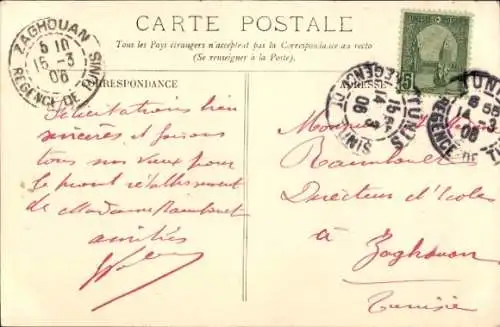 CARTE POSTALE
Tous les Pays étrangers n'acceptent pas la Correspondance au recto
(Se renseigner à la Poste).
ZAGHOUAN
5 10
15 -3
06
REGENCE DE TUNIS
CORRESPONDANCE
Félicitations bien
sincères et faisons
tous nos vœux pour
le prompt rétablissement
de Madame Rambouet
amitiés
ADRESSE
5
TUNIS
14 -3
06
REGENCE DE TUNIS
TUNIS
14 -3
06
REGENCE DE
Monsieur et Madame
Directeur d'école
à
Zaghouan
Tunisie